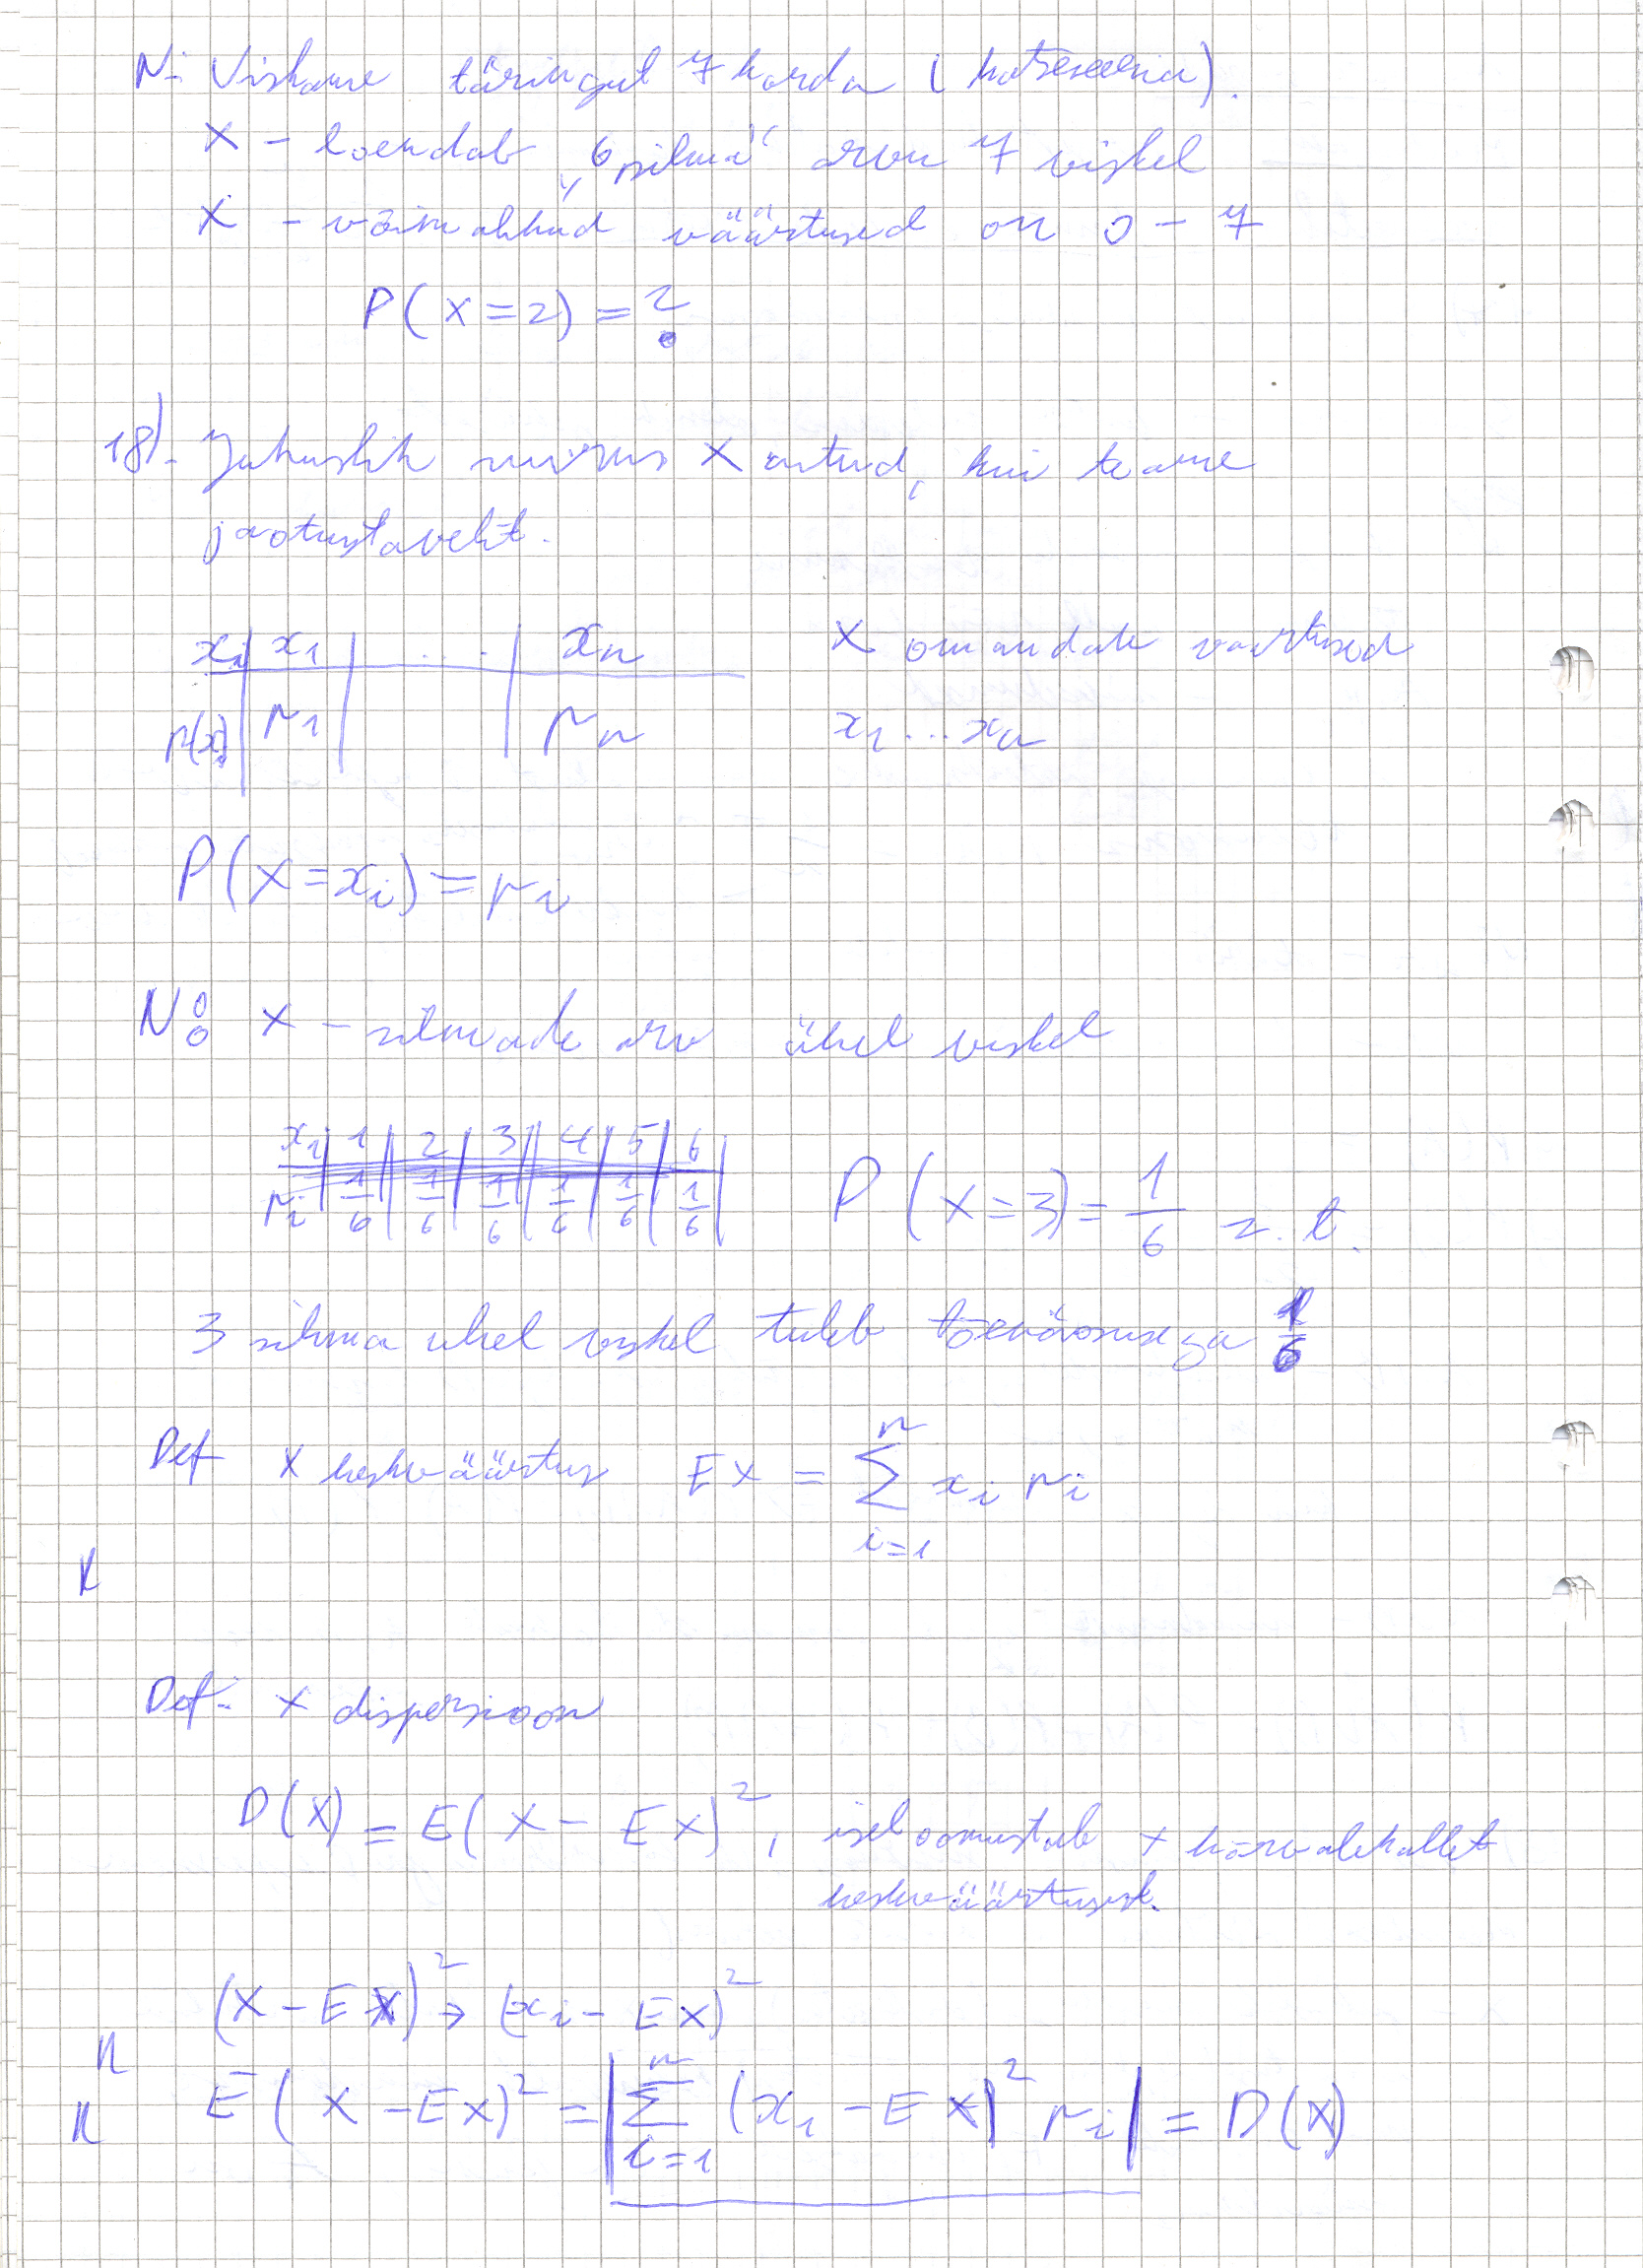 N: Viskame täringut 7 korda (katseseeria).
X - loendab „6 silma“ arvu 7 viskel
X - võimalikud väärtused on 0 - 7
P(X=2) = ?
18). Juhuslik suurus X antud, kui teame
jaotustabelit.
xi | x1 | .... | xn X omandab vaartused
p(xi) | p1 | | pn x1 ... xn
P(X=xi) = pi
N: X - silmade arv ühel viskel
xi | 1 | 2 | 3 | 4 | 5 | 6 |
pi | 1/6 | 1/6 | 1/6 | 1/6 | 1/6 | 1/6 | P(X=3) = 1/6 s.t.
3 silma uhel viskel tuleb tõenäosusega 1/6
Def X keskväärtus EX = ∑_{i=1}^{n} xi pi
K
Def: X dispersioon
D(X) = E(X - EX)², iseloomustab X kõrvalekallet
keskväärtusest.
(X - EX)² → (xi - EX)²
E(X - EX)² = | ∑_{i=1}^{n} (xi - EX)² pi | = D(X)